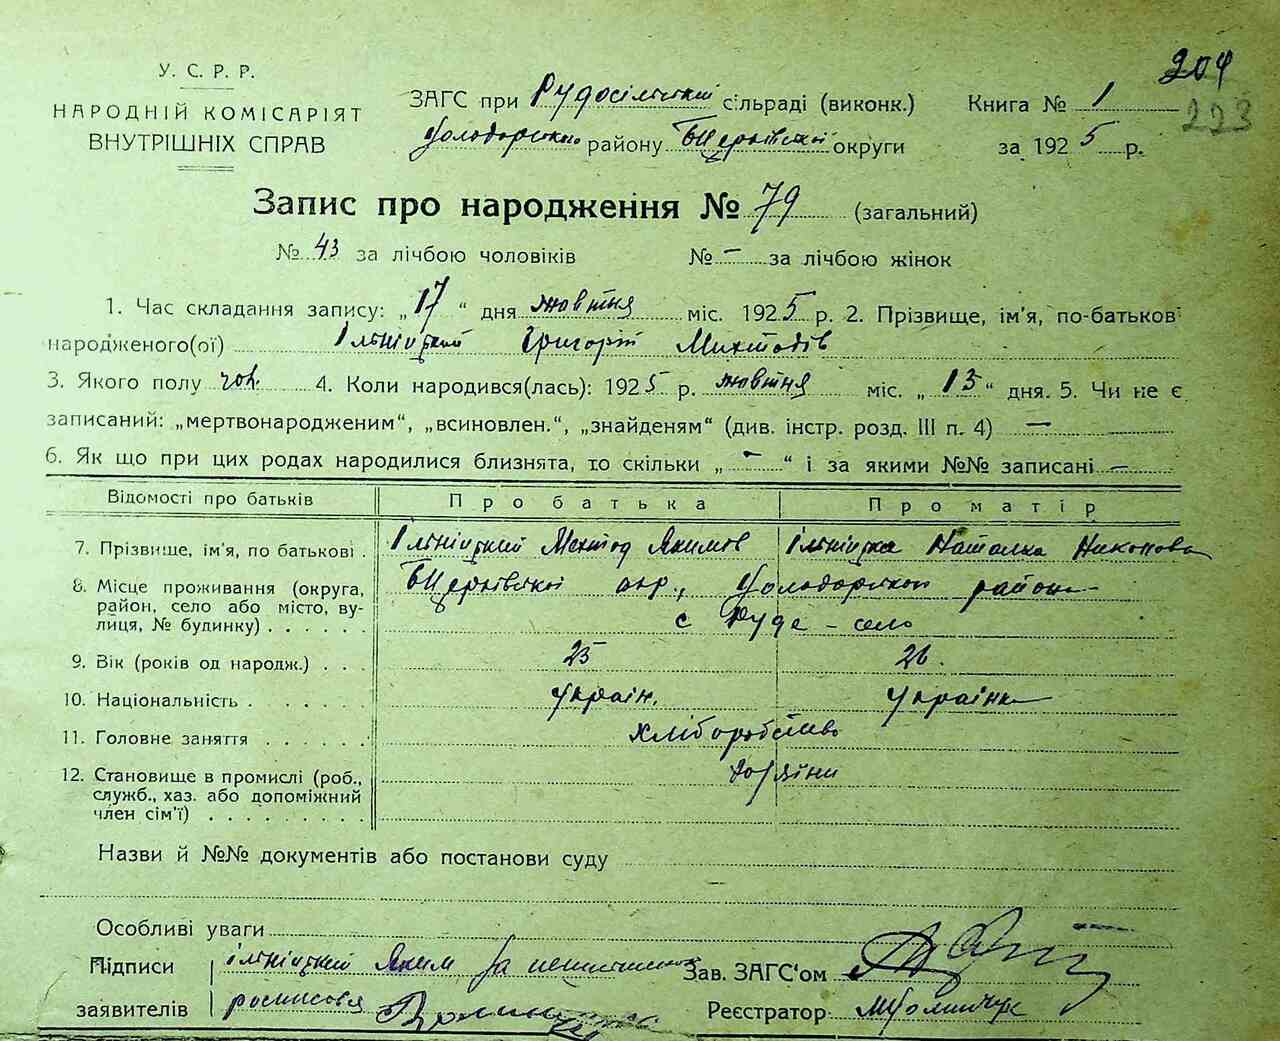 204
223
У. С. Р. Р.
НАРОДНІЙ КОМІСАРІЯТ
ВНУТРІШНІХ СПРАВ
ЗАГС при Рудосільській сільраді (виконк.) Книга № 1
Володарського району БЦерківської округи за 1925 р.
Запис про народження № 79 (загальний)
№ 43 за лічбою чоловіків № — за лічбою жінок
1. Час складання запису: „17“ дня жовтня міс. 1925 р. 2. Прізвище, ім'я, по-батьков
народженого(ої) Ільніцкий Григорій Михтодів
3. Якого полу чол. 4. Коли народився(лась): 1925 р. жовтня міс. „13“ дня. 5. Чи не є
записаний: „мертвонародженим“, „всиновлен.“, „знайденям“ (див. інстр. розд. III п. 4) —
6. Як що при цих родах народилися близнята, то скільки „-“ і за якими №№ записані —
Відомості про батьків Про батька Про матір
7. Прізвище, ім'я, по батькові . Ільніцкий Мехтод Якимов Ільніцка Наталка Никонова
8. Місце проживання (округа, район, село або місто, вулиця, № будинку) . . . . . . БЦерківської окр., Володарської району
с Руде - село
9. Вік (років од народж.) . . . 25 26.
10. Національність . . . . . . . украін. украінка
11. Головне заняття . . . . . . хліборобство
12. Становище в промислі (роб., служб., хаз. або допоміжний член сім'ї) . . . . . . . . .
Назви й №№ документів або постанови суду
Особливі уваги
Підписи Ільніцкий Яким за Зав. ЗАГС'ом
заявителів росписовся Реєстратор